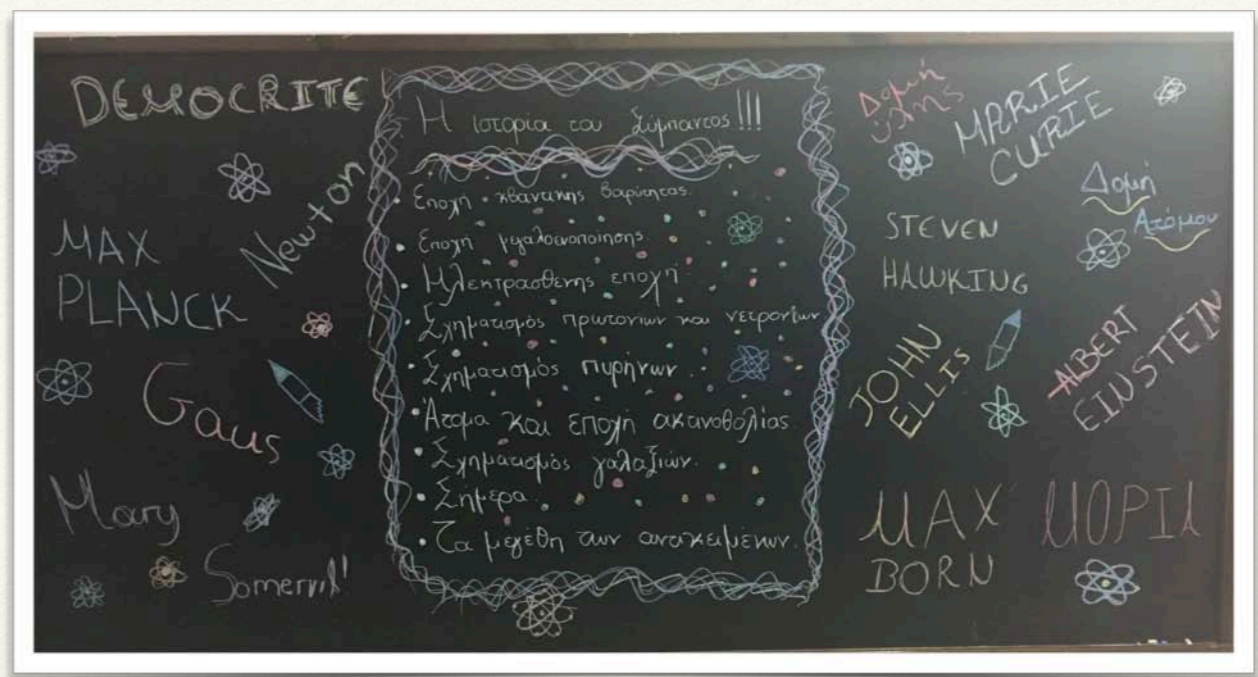 DEMOCRITE
Newton
MAX
PLANCK
Gaus
Mary
Somervil'
Η ιστορία του Σύμπαντος!!!
• Εποχή κβαντικής βαρύτητας.
• Εποχή μεγαλοενοποίησης
• Ηλεκτρασθενής εποχή
• Σχηματισμός πρωτονίων και νετρονίων
• Σχηματισμός πυρήνων.
• Άτομα και εποχή ακτινοβολίας
• Σχηματισμός γαλαξιών.
• Σήμερα.
• Τα μεγέθη των αντικειμένων.
Δομή
ύλης
MARIE
CURIE
Δομή
Ατόμου
STEVEN
HAWKING
JOHN
ELLIS
ALBERT
EINSTEIN
MAX
BORN